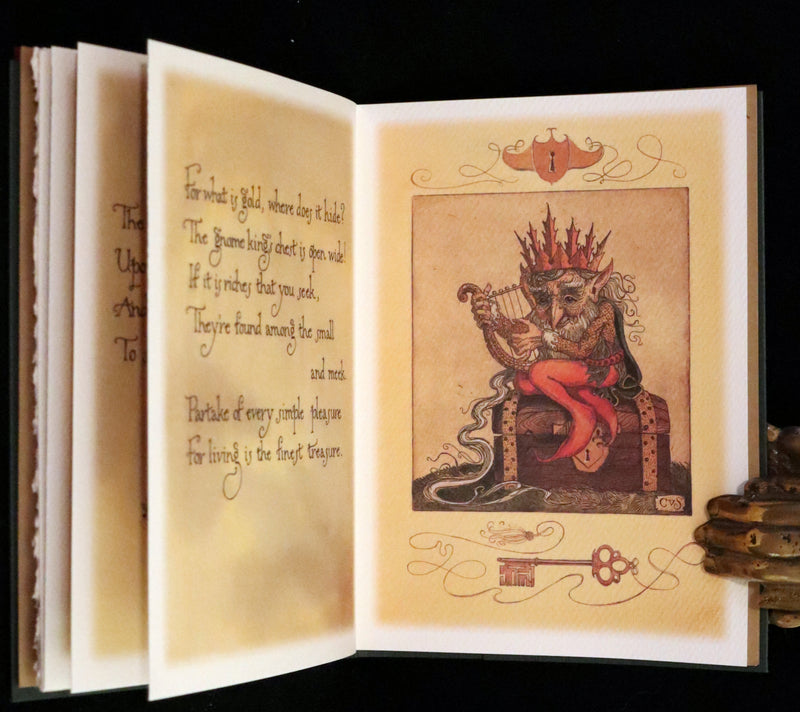 The
Upo
And
To
For what is gold, where does it hide?
The gnome king's chest is open wide!
If it is riches that you seek,
They're found among the small
and meek.
Partake of every simple pleasure
For living is the finest treasure.
CvS